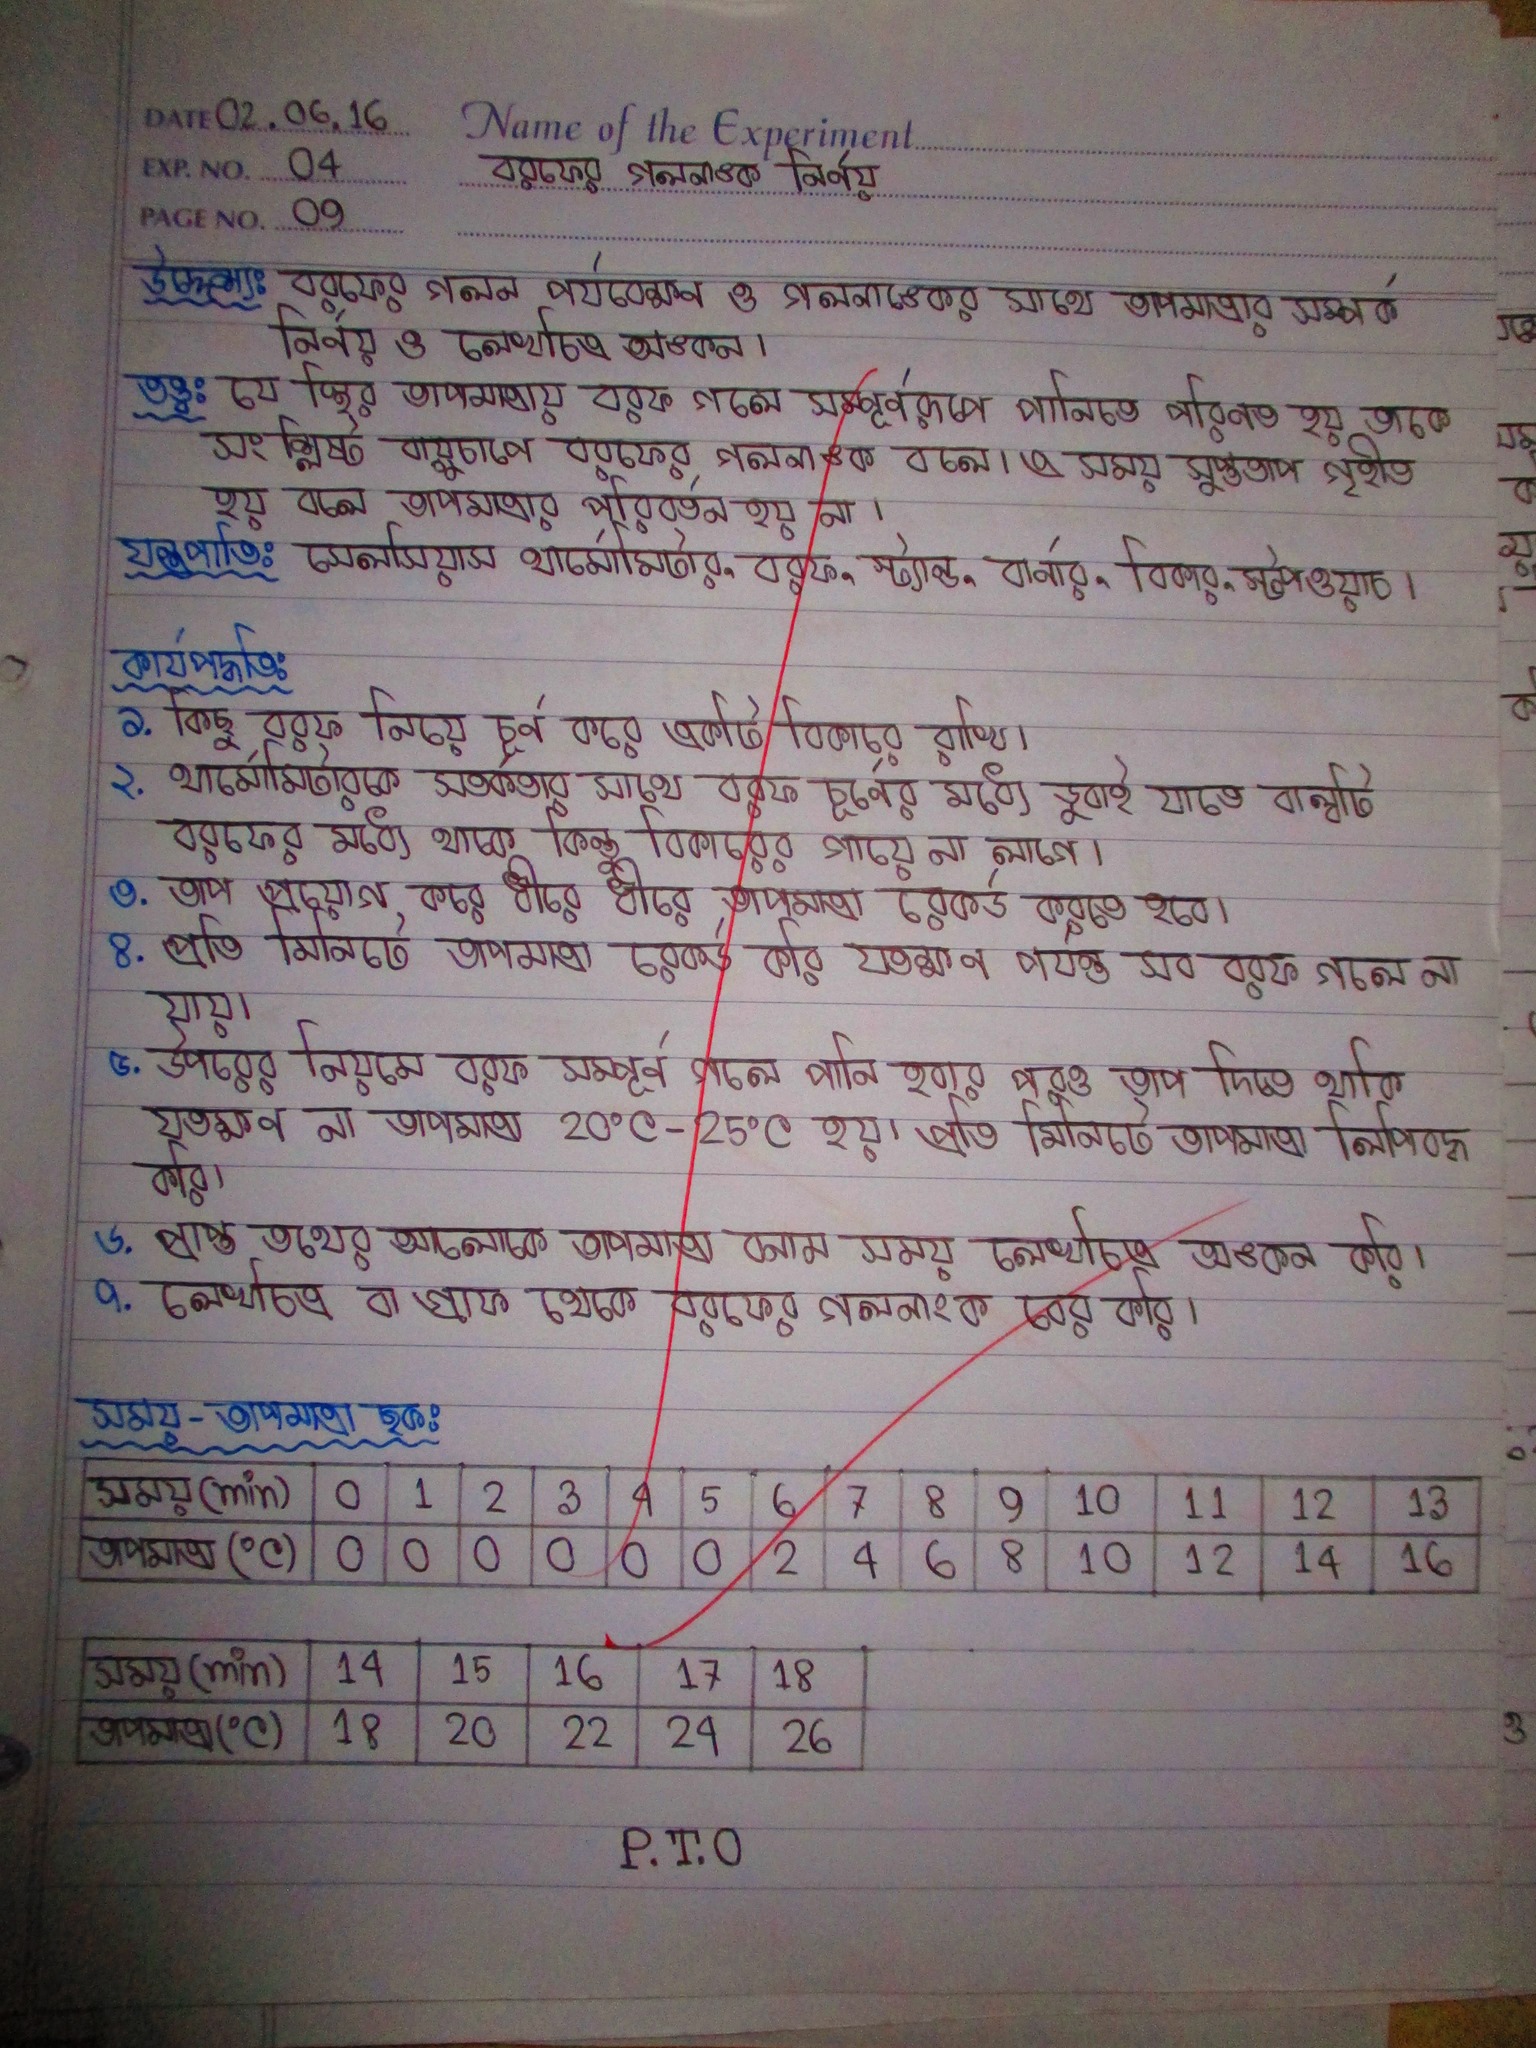 DATE 02.06.16 Name of the Experiment
EXP. NO. 04 বরফের গলনাঙক নির্ণয়
PAGE NO. 09
উদ্দেশ্যঃ বরফের গলন পর্যবেক্ষণ ও গলনাঙেকর সাথে তাপমাত্রার সম্পর্ক
নির্ণয় ও লেখচিত্র অঙকন।
তত্ত্বঃ যে স্থির তাপমাত্রায় বরফ গলে সম্পূর্ণরূপে পানিতে পরিনত হয় তাকে
সংশ্লিষ্ট বায়ুচাপে বরফের গলনাঙক বলে। এ সময় সুপ্ততাপ গৃহীত
হয় বলে তাপমাত্রার পরিবর্তন হয় না।
যন্ত্রপাতিঃ সেলসিয়াস থার্মোমিটার, বরফ, স্ট্যান্ড, বার্নার, বিকার, স্টপওয়াচ।
কার্যপদ্ধতিঃ
১. কিছু বরফ নিয়ে চূর্ণ করে একটি বিকারে রাখি।
২. থার্মোমিটারকে সতর্কতার সাথে বরফ চূর্ণের মধ্যে ডুবাই যাতে বাল্বটি
বরফের মধ্যে থাকে কিন্তু বিকারের গায়ে না লাগে।
৩. তাপ প্রয়োগ করে ধীরে ধীরে তাপমাত্রা রেকর্ড করতে হবে।
৪. প্রতি মিনিটে তাপমাত্রা রেকর্ড করি যতক্ষণ পর্যন্ত সব বরফ গলে না
যায়।
৫. উপরের নিয়মে বরফ সম্পূর্ণ গলে পানি হবার পরও তাপ দিতে থাকি
যতক্ষণ না তাপমাত্রা 20°C-25°C হয়। প্রতি মিনিটে তাপমাত্রা লিপিবদ্ধ
করি।
৬. প্রাপ্ত তথ্যের আলোকে তাপমাত্রা বনাম সময় লেখচিত্র অঙকন করি।
৭. লেখচিত্র বা গ্রাফ থেকে বরফের গলনাংক বের করি।
সময়-তাপমাত্রা ছকঃ
সময়(min) 0 1 2 3 4 5 6 7 8 9 10 11 12 13
তাপমাত্রা (°C) 0 0 0 0 0 0 2 4 6 8 10 12 14 16
সময়(min) 14 15 16 17 18
তাপমাত্রা(°C) 18 20 22 24 26
P.T.O